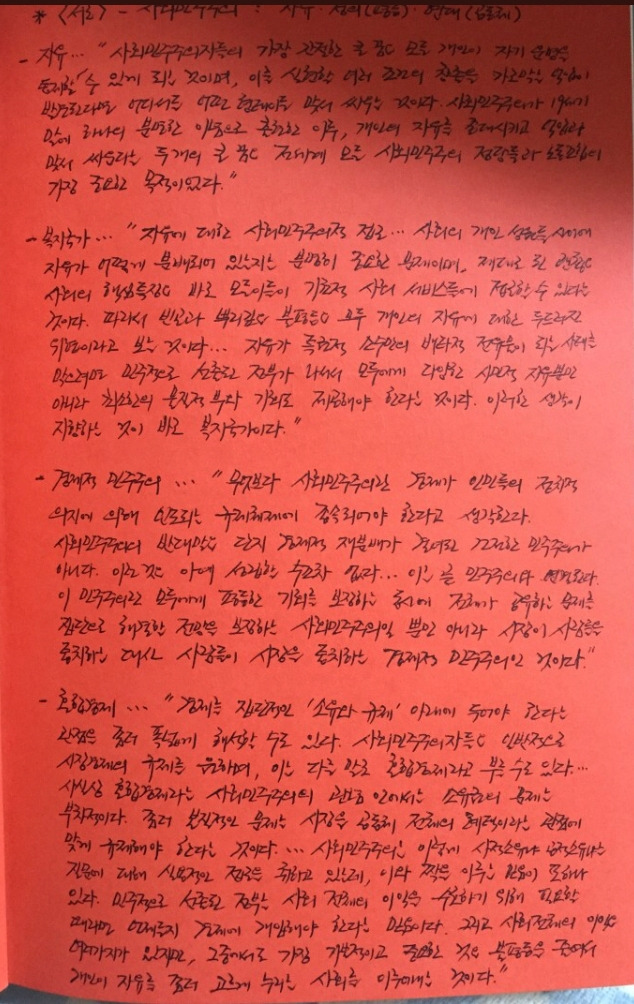 * <서론> - 사회민주주의 : 자유 · 정의(평등) · 연대(공동체)
- 자유... "사회민주주의자들의 가장 간절한 큰 꿈은 모든 개인이 자기 운명을
통제할 수 있게 되는 것이며, 이를 실현할 여러 조건의 창출을 가로막는 일이
반복된다면 어디서든 어떤 형태이든 맞서 싸우는 것이다. 사회민주주의가 19세기
말에 하나의 분명한 이념으로 출현한 이후, 개인의 자유를 증대시키고 억압과
맞서 싸우라는 두 개의 큰 꿈은 전세계 모든 사회민주주의 정당들과 노동조합의
가장 중요한 목적이었다."
- 복지국가... "자유에 대한 사회민주주의적 접근... 사회의 개인 성원들 사이에
자유가 어떻게 분배되어 있는지는 분명히 중요한 문제이며, 제대로 된
사회의 핵심특징은 바로 모든이들이 기초적 사회 서비스들에 접근할 수 있다는
것이다. 따라서 빈곤과 뿌리깊은 불평등은 모두 개인의 자유에 대한 두드러진
위협이라고 보는 것이다... 자유가 특권적 소수만의 배타적 전유물이 되는 사태를
막으려면 민주적으로 선출된 정부가 나서서 모두에게 다양한 시민적 자유뿐만
아니라 최소한의 물질적 부와 기회도 제공해야 한다는 것이다. 이러한 생각이
지향하는 것이 바로 복지국가이다."
- 경제적 민주주의 ... "무엇보다 사회민주주의란 경제가 인민들의 정치적
의지에 의해 인도되는 규제체제에 종속되어야 한다고 생각한다.
사회민주주의의 반대말은 단지 경제적 재분배가 결여된 건전한 민주주의가
아니다. 이런 것은 아예 성립할 수조차 없다... 이는 곧 민주주의와 연결된다.
이 민주주의란 모두에게 평등한 기회를 보장하는 동시에 전체가 공유하는 문제를
집단으로 해결할 전망을 보장하는 사회민주주의일 뿐만 아니라 시장이 사람들을
통치하는 대신 사람들이 시장을 통치하는 경제적 민주주의인 것이다."
- 혼합경제 ... "경제를 집단적인 '소유와 규제' 아래에 두어야 한다는
관점은 좀더 폭넓게 해석할 수도 있다. 사회민주주의자들은 일반적으로
시장경제의 규제를 원하며, 이는 다른 말로 혼합경제라고 부를 수도 있다...
사실상 혼합경제라는 사회민주주의의 관념 안에서는 소유권의 문제는
부차적이다. 좀더 본질적인 문제는 시장을 공동체 전체의 혜택이라는 관점에
맞게 규제해야 한다는 것이다. ... 사회민주주의는 이렇게 사적소유냐 공적소유냐는
질문에 대해 실용적인 접근을 취하고 있는데, 이와 짝을 이루는 믿음이 또하나
있다. 민주적으로 선출된 정부는 사회 전체의 이익을 수호하기 위해 필요할
때라면 언제든지 경제에 개입해야 한다는 믿음이다. 그리고 사회전체의 이익은
여러가지가 있지만, 그중에서도 가장 기본적이고 중요한 것은 불평등을 줄여서
개인이 자유를 좀더 고르게 누리는 사회를 이루어내는 것이다."